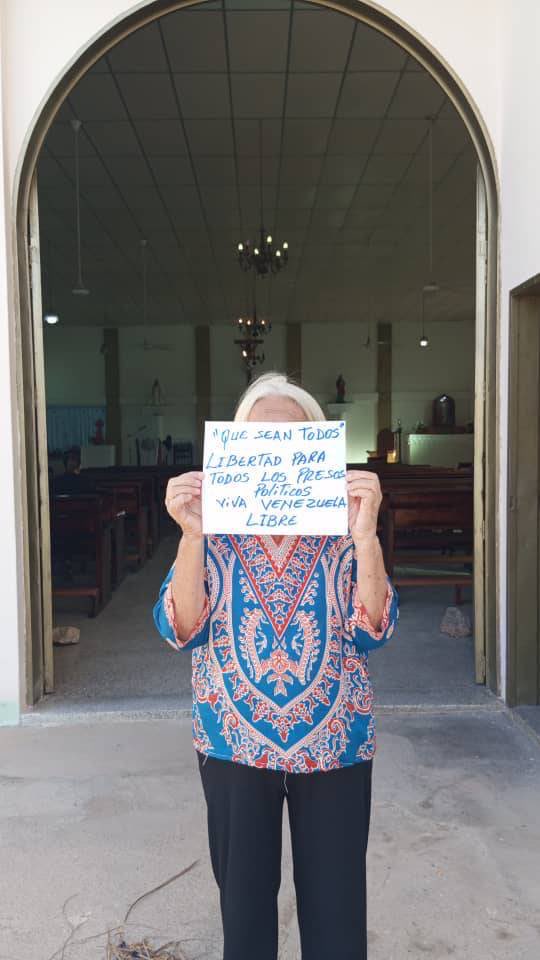 "QUE SEAN TODOS"
LIBERTAD PARA
TODOS LOS PRESOS
POLITICOS
VIVA VENEZUELA
LIBRE